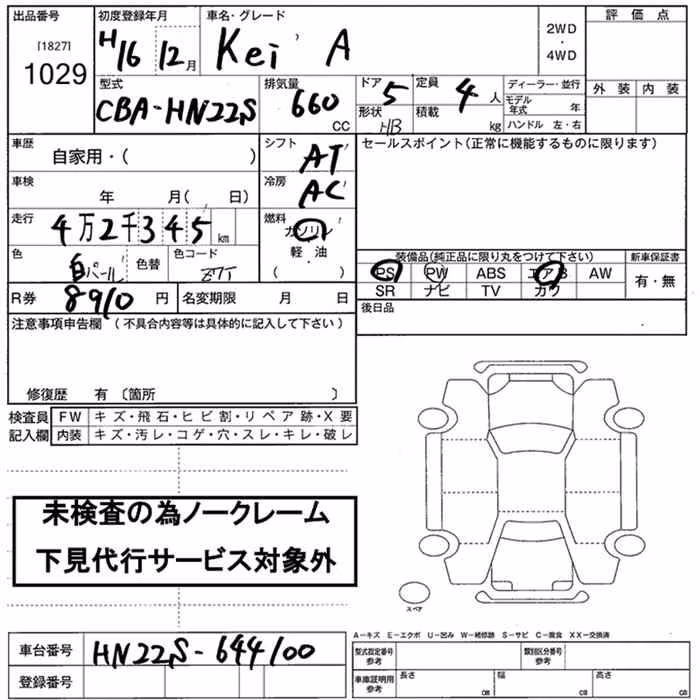 出品番号 初度登録年月 車名・グレード 評価点
[1827] 1029 H16 12月 Kei A 2WD・4WD
型式 排気量 ドア 5 定員 4人 ディーラー・並行 外装 内装
CBA-HN22S 660 CC 形状 HB 積載 kg モデル年式 年
ハンドル 左・右
車歴 自家用・( ) シフト AT セールスポイント(正常に機能するものに限ります)
車検 年 月( 日) 冷房 AC
走行 4万2千345km 燃料 ガソリン
軽油
( )
色 白パール 色替 色コード Z7T 装備品(純正品に限り丸をつけて下さい) 新車保証書
PS PW ABS エアB AW 有・無
R券 8910円 名変期限 月 日 SR ナビ TV カワ
注意事項申告欄(不具合内容等は具体的に記入して下さい) 後日品
修復歴 有 〔箇所 〕
検査員 FW キズ・飛石・ヒビ割・リペア跡・X要
記入欄 内装 キズ・汚レ・コゲ・穴・スレ・キレ・破レ
未検査の為ノークレーム
下見代行サービス対象外
スペア
A-キズ E-エクボ U-凹み W-補修跡 S-サビ C-腐食 XX-交換済
車台番号 HN22S-644100 型式指定番号 参考 類別区分番号 参考
登録番号 車庫証明用 参考 長さ cm 幅 cm 高さ cm